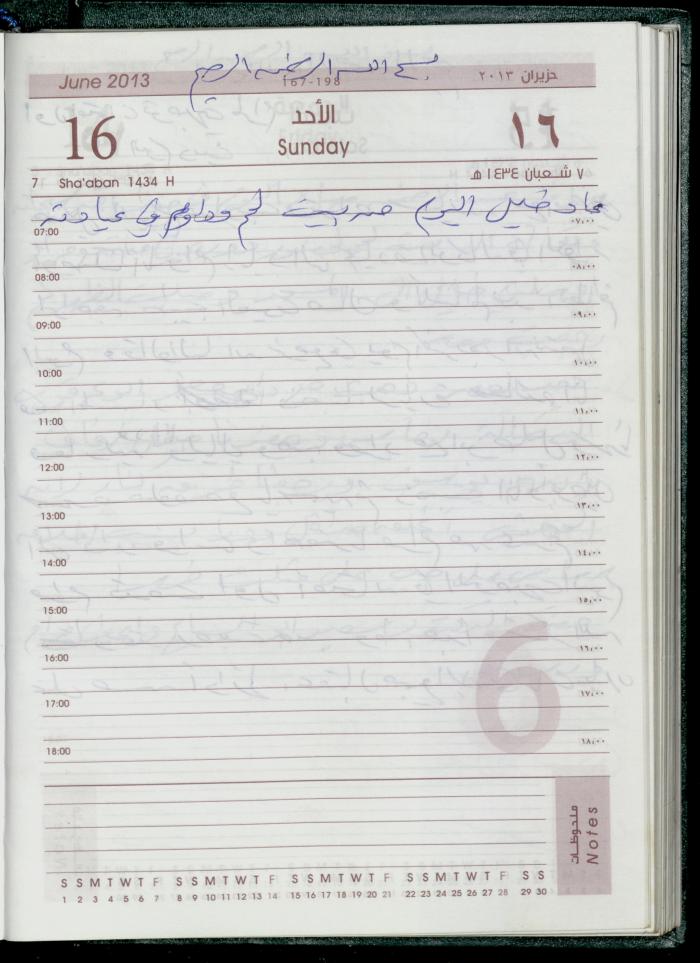 بسم الله الرحمن الرحيم
June 2013
167-198
حزيران ٢٠١٣
16
الأحد
Sunday
١٦
7 Sha'aban 1434 H
٧ شعبان ١٤٣٤ هـ
عاد خليل اليوم من بيت لحم وداوم في عيادته
07:00 ٠٧,٠٠
08:00 ٠٨,٠٠
09:00 ٠٩,٠٠
10:00 ١٠,٠٠
11:00 ١١,٠٠
12:00 ١٢,٠٠
13:00 ١٣,٠٠
14:00 ١٤,٠٠
15:00 ١٥,٠٠
16:00 ١٦,٠٠
17:00 ١٧,٠٠
18:00 ١٨,٠٠
6
ملحوظات
Notes
S S M T W T F S S M T W T F S S M T W T F S S M T W T F S S
1 2 3 4 5 6 7 8 9 10 11 12 13 14 15 16 17 18 19 20 21 22 23 24 25 26 27 28 29 30